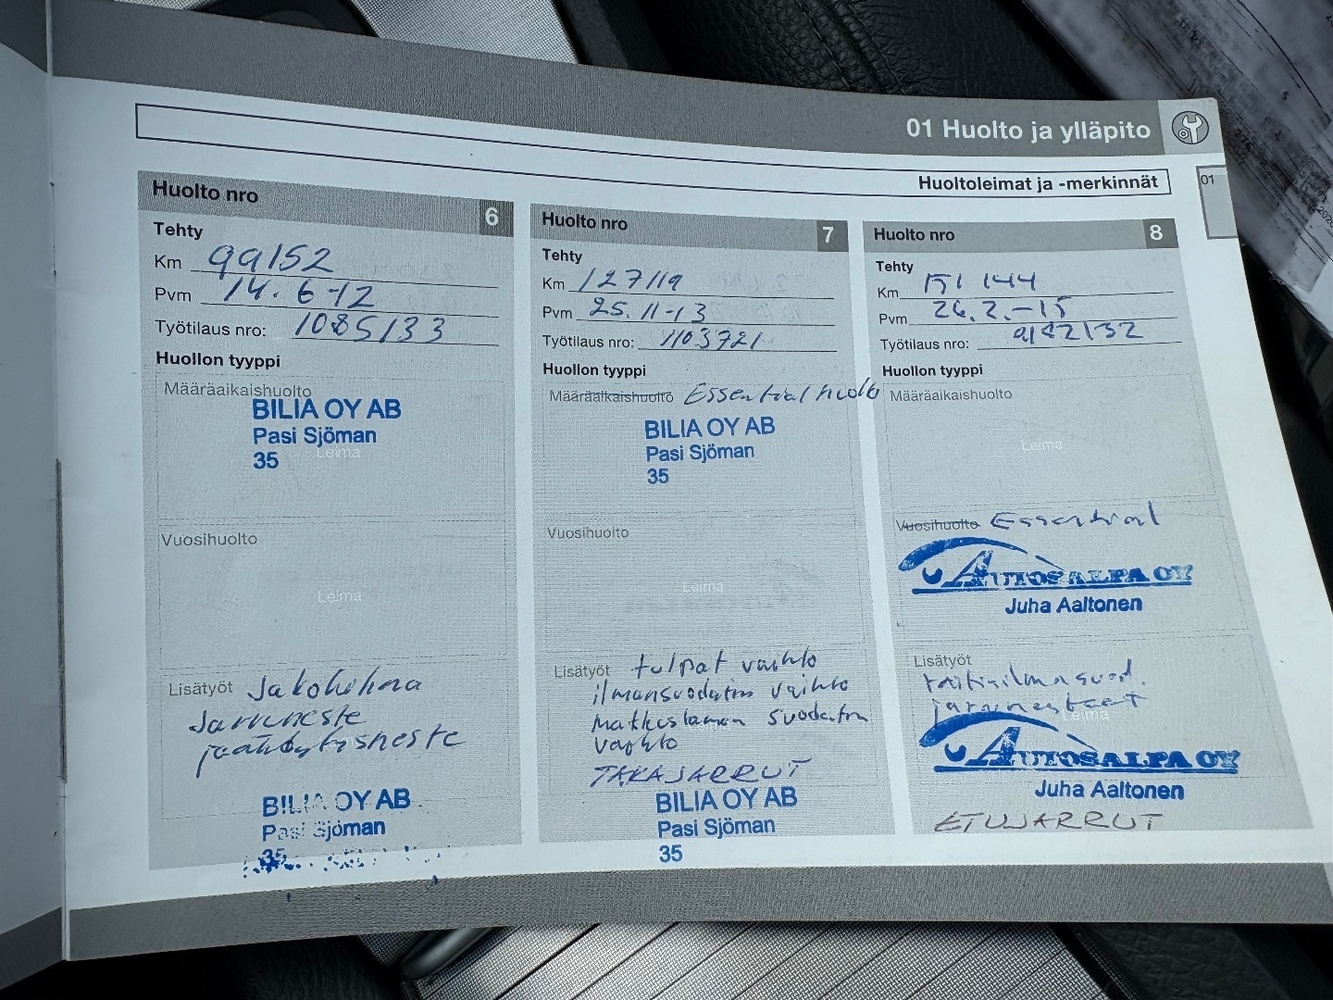 01 Huolto ja ylläpito
Huoltoleimat ja -merkinnät
01
Huolto nro 6
Tehty
Km 99152
Pvm 14.6-12
Työtilaus nro: 1085133
Huollon tyyppi
Määräaikaishuolto
BILIA OY AB
Pasi Sjöman
35 Leima
Vuosihuolto
Leima
Lisätyöt Jakohihna
Jarruneste
jäähdytysneste
BILIA OY AB
Pasi Sjöman
35
Huolto nro 7
Tehty
Km 127119
Pvm 25.11-13
Työtilaus nro: 1103721
Huollon tyyppi
Määräaikaishuolto Essential huolto
BILIA OY AB
Pasi Sjöman
35
Vuosihuolto
Leima
Lisätyöt tulpat vaihto
ilmansuodatin vaihto
Matkustamon suodatin
vaihto
TAKAJARRUT
BILIA OY AB
Pasi Sjöman
35
Huolto nro 8
Tehty
Km 151 144
Pvm 26.2.-15
Työtilaus nro: 9182132
Huollon tyyppi
Määräaikaishuolto
Leima
Vuosihuolto Essential
AUTOSALPA OY
Juha Aaltonen
Lisätyöt
raitisilmasuod.
jarrunesteet
Leima
AUTOSALPA OY
Juha Aaltonen
ETUJARRUT